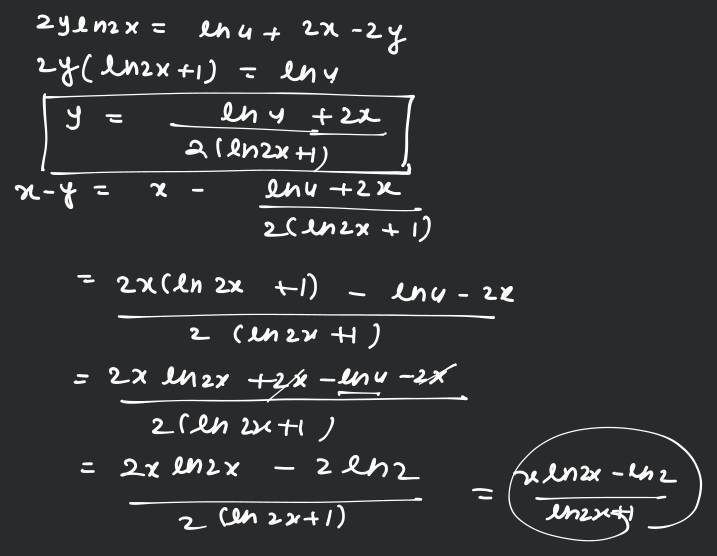 2y ln2x = ln4 + 2x - 2y
2y(ln2x+1) = ln4
y = ln4 + 2x / 2(ln2x+1)
x-y = x - ln4 + 2x / 2(ln2x + 1)
= 2x(ln 2x +1) - ln4 - 2x / 2 (ln2x+1)
= 2x ln2x +2x - ln4 - 2x / 2(ln 2x+1)
= 2x ln2x - 2 ln2 / 2 (ln 2x+1) = x ln2x - ln2 / ln2x+1